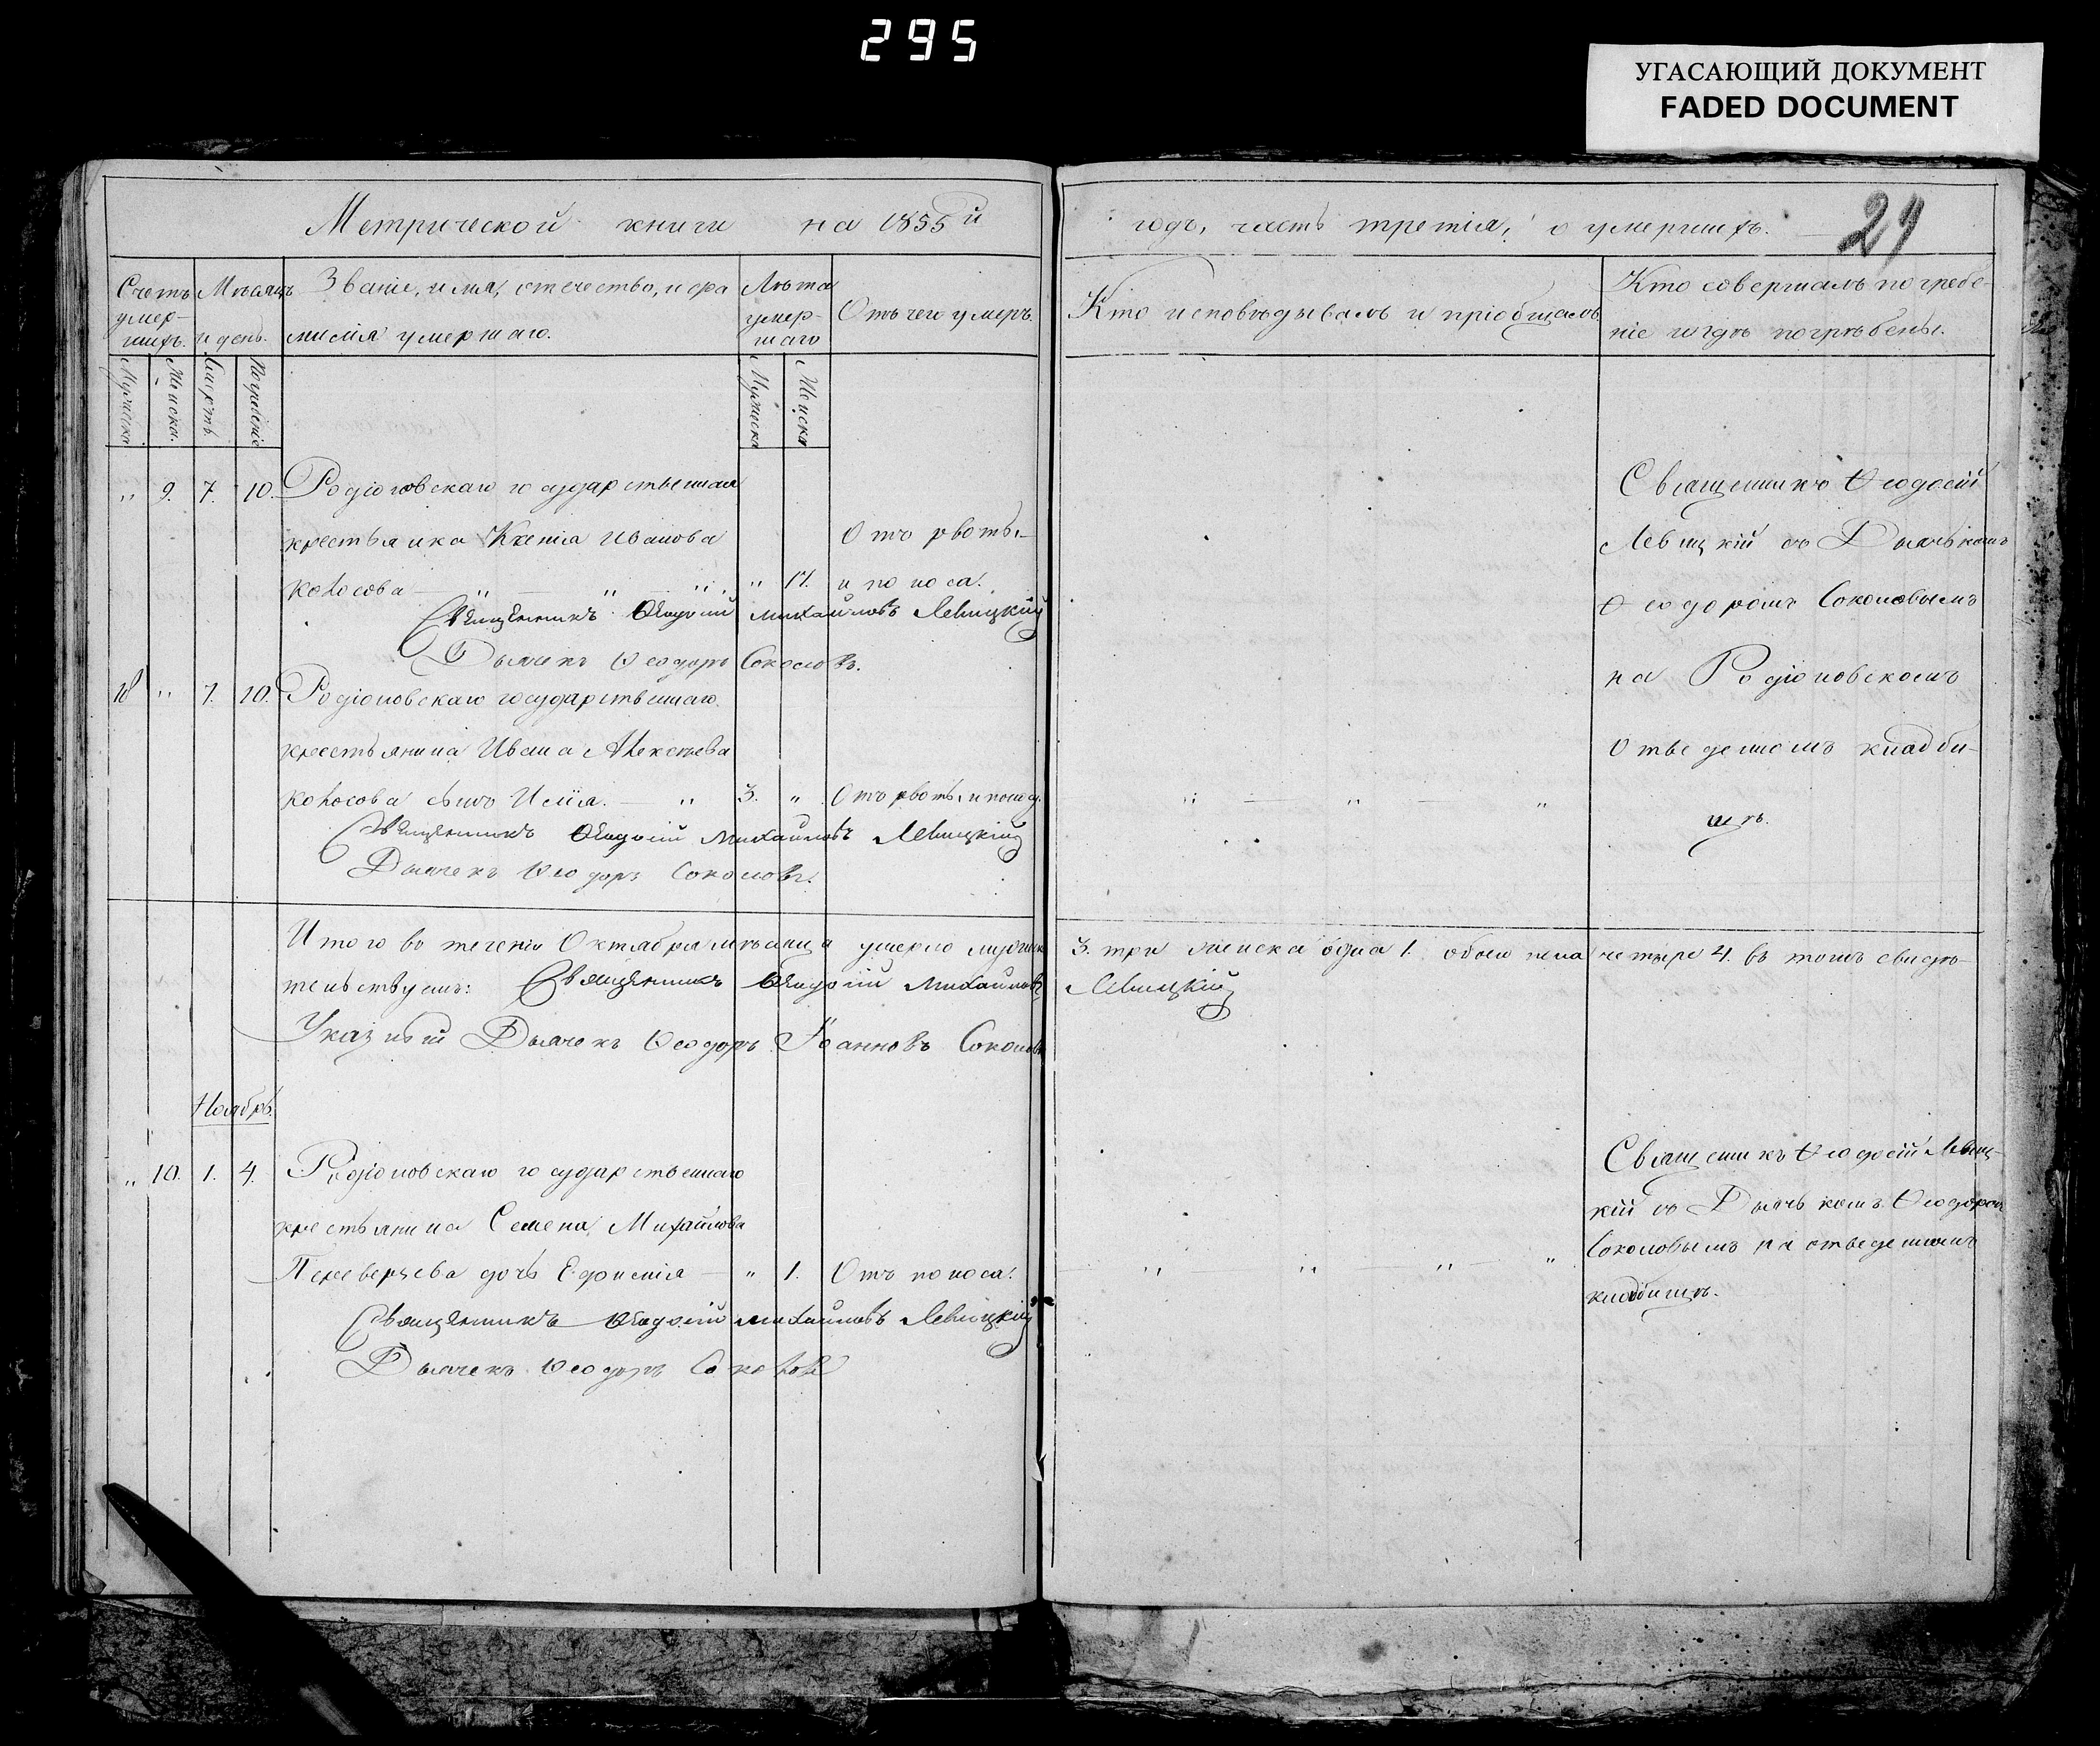 295
УГАСАЮЩИЙ ДОКУМЕНТ
FADED DOCUMENT
Метрической книги на 1855й
годъ, часть третія, о умершихъ.
Счетъ умер-
шихъ.
Мѣсяцъ
и день.
Званіе, имя, отечество, и фа
милія умершаго.
Лѣта
умер-
шаго
Отъ чего умеръ.
Кто исповѣдывалъ и пріобщалъ
Кто совершалъ погребе-
ніе и гдѣ погрѣбены.
Мужеска
Женска.
Смерть
Погребеніе
Мужеска
Женска
" 9. 7. 10. Родіоновскаго государственная
крестьянка Ксенія Иванова Отъ рвоты
Колосова " " " " 17. и поноса.
Священникъ Ѳеодосій Михайловъ Левицкій
Дьячекъ Ѳеодоръ Соколовъ.
Священникъ Ѳеодосій
Левицкій съ Дьячькомъ
Ѳеодоромъ Соколовымъ
на Родіоновскомъ
Отведенномъ кладби-
щѣ.
18 " 7. 10. Родіоновскаго государственнаго
крестьянина Ивана Алексѣева
Колосова сынъ Илія. " 3. " Отъ рвоты и поноса. " " "
Священникъ Ѳеодосій Михайловъ Левицкій
Дьячекъ Ѳеодоръ Соколовъ.
Итого въ теченіи Октября мѣсяца умерло мужеска 3. три женска одна 1. обоего пола четыре 4. въ томъ свидѣ-
тельствуемъ: Священникъ Ѳеодосій Михайловъ Левицкій
Указный Дьячекъ Ѳеодоръ Іоанновъ Соколовъ
Ноябрь.
" 10. 1. 4. Родіоновскаго государственнаго
крестьянина Семена Михайлова
Переверзева дочь " 1. Отъ поноса. " " " "
Священникъ Ѳеодосій Михайловъ Левицкій
Дьячекъ Ѳеодоръ Соколовъ
Священникъ Ѳеодосій Левиц-
кій съ Дьячькомъ Ѳеодоромъ
Соколовымъ на отведенномъ
кладбищѣ.